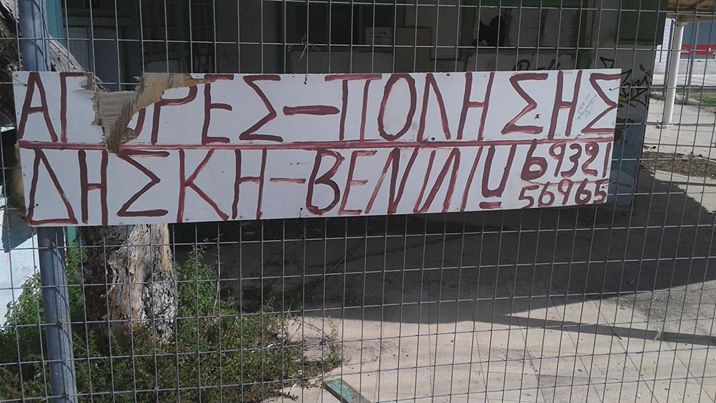 ΑΓΟΡΕΣ-ΠΟΛΗΣΗΣ
ΔΗΣΚΗ-ΒΕΝΙΛΙΥ 69321
56965